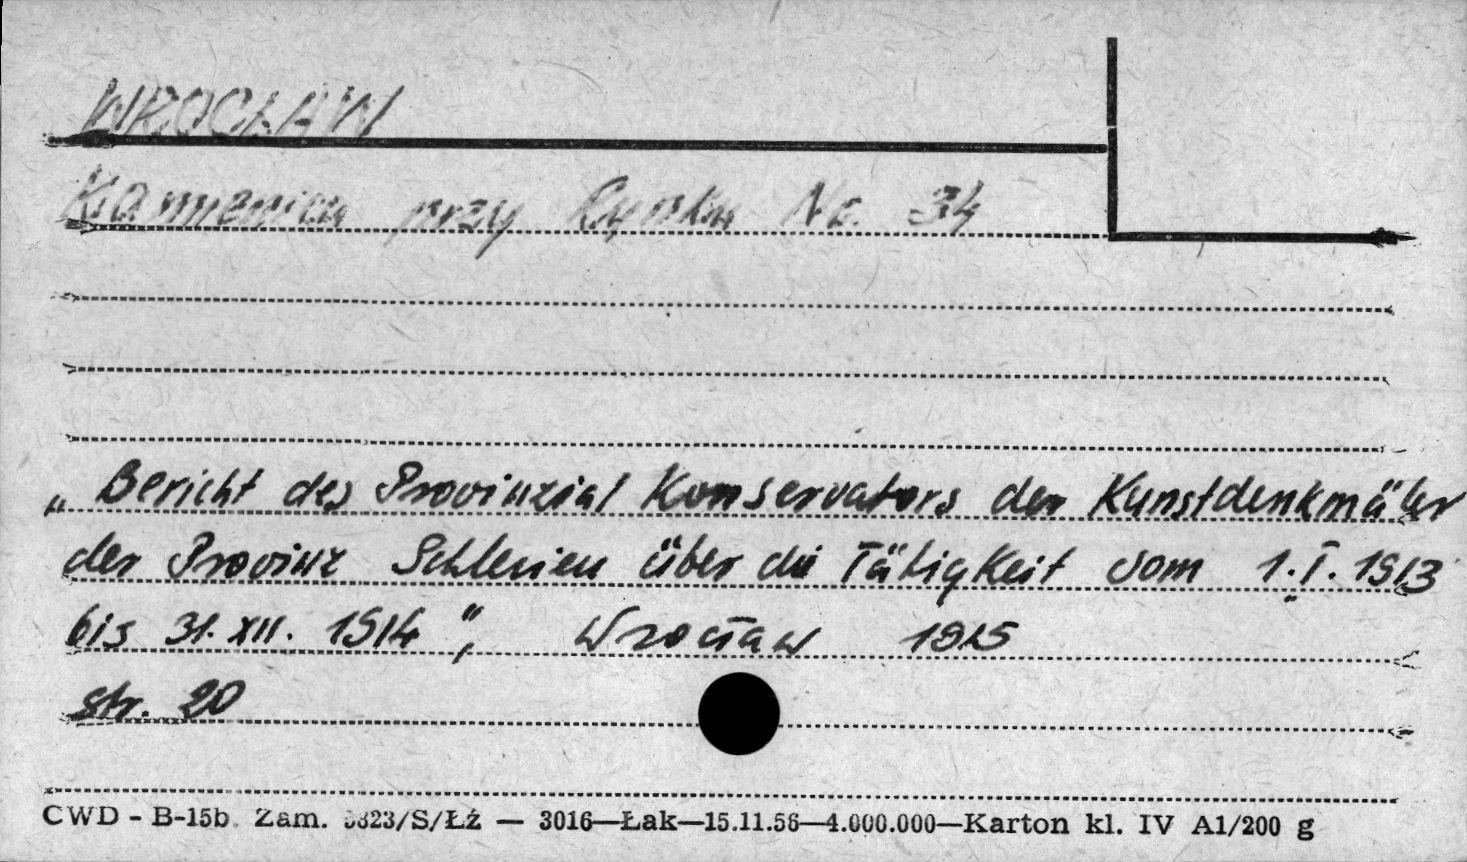 WROCŁAW
Kamienica przy Rynku Nr. 34
„Bericht des Provinzial Konservators der Kunstdenkmäler
der Provinz Schlesien über die Tätigkeit vom 1.I.1913
bis 31.XII.1914", Wrocław 1915
str. 20
CWD - B-15b. Zam. 5823/S/ŁŻ — 3016—Łak—15.11.56—4.000.000—Karton kl. IV A1/200 g